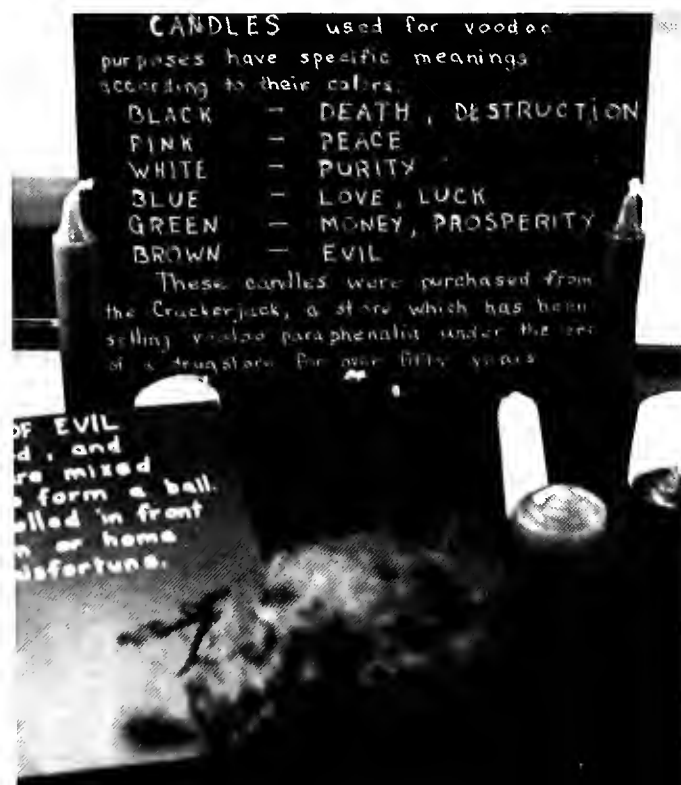 CANDLES used for voodoo
purposes have specific meanings
according to their colors.
BLACK — DEATH, DESTRUCTION
PINK — PEACE
WHITE — PURITY
BLUE — LOVE, LUCK
GREEN — MONEY, PROSPERITY
BROWN — EVIL
These candles were purchased from
the Crackerjack, a store which has been
selling voodoo paraphenalia under the
of a drugstore for over fifty years
OF EVIL
d, and
re mixed
form a ball.
lled in front
or home
isfortune.